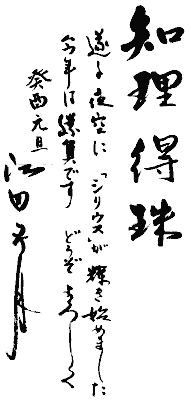 知理得珠
遂に夜空に「シリウス」が輝き始めました
今年は勝負です どうぞよろしく
癸酉元旦
江田五月